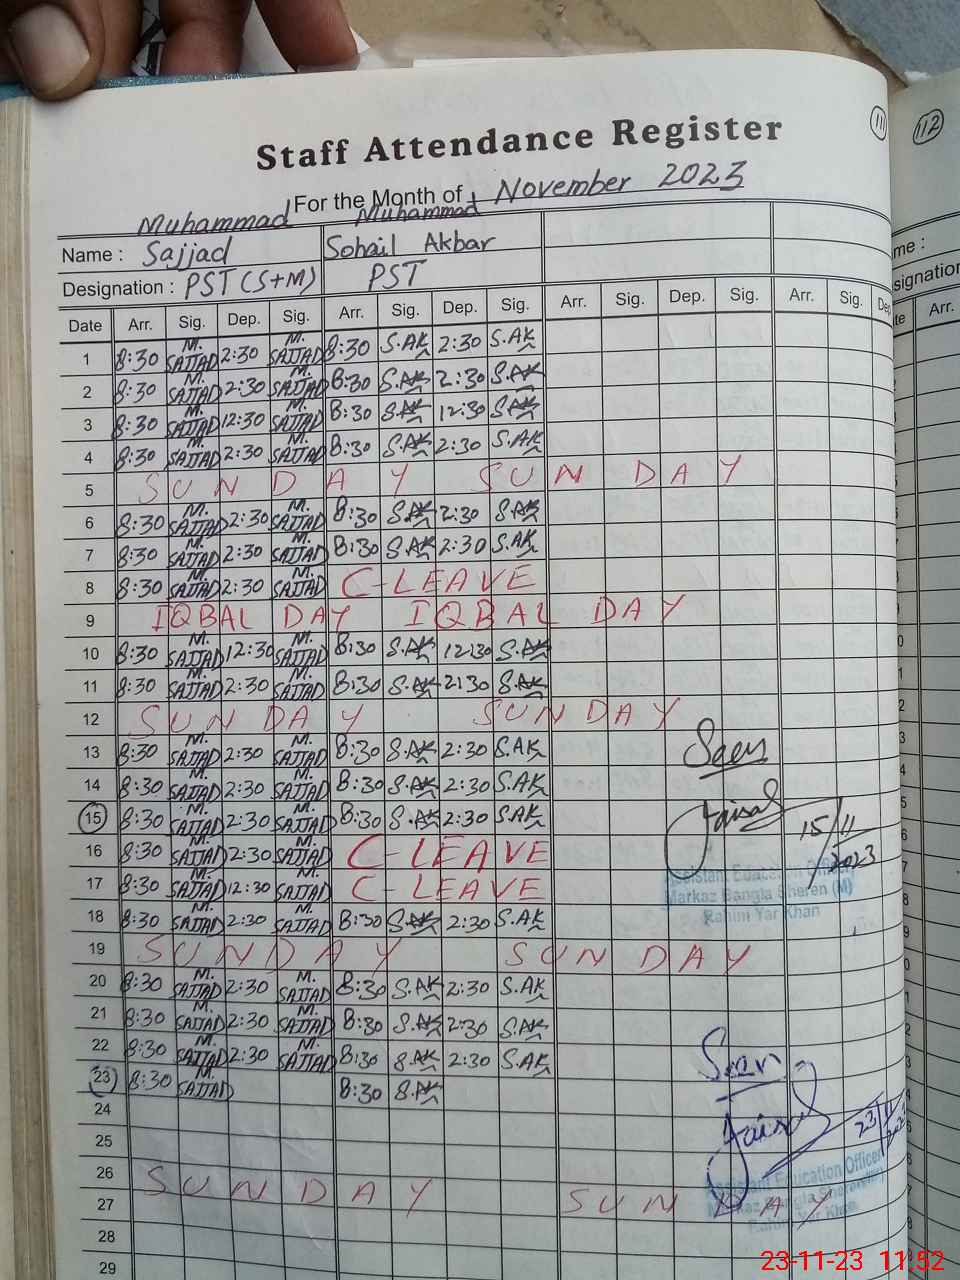 111
112
Staff Attendance Register
For the Month of November 2023
Muhammad Muhammad
Name : Sajjad Sohail Akbar
Designation : PST (S+M) PST
Date Arr. Sig. Dep. Sig. Arr. Sig. Dep. Sig. Arr. Sig. Dep. Sig. Arr. Sig. Dep
1 8:30 M. SAJJAD 2:30 M. SAJJAD 8:30 S.AK 2:30 S.AK
2 8:30 M. SAJJAD 2:30 M. SAJJAD 8:30 S.AK 2:30 S.AK
3 8:30 M. SAJJAD 12:30 M. SAJJAD 8:30 S.AK 12:30 S.AK
4 8:30 M. SAJJAD 2:30 M. SAJJAD 8:30 S.AK 2:30 S.AK
5 SUNDAY SUNDAY
6 8:30 M. SAJJAD 2:30 M. SAJJAD 8:30 S.AK 2:30 S.AK
7 8:30 M. SAJJAD 2:30 M. SAJJAD 8:30 S.AK 2:30 S.AK
8 8:30 M. SAJJAD 2:30 M. SAJJAD C-LEAVE
9 IQBAL DAY IQBAL DAY
10 8:30 M. SAJJAD 12:30 M. SAJJAD 8:30 S.AK 12:30 S.AK
11 8:30 M. SAJJAD 2:30 M. SAJJAD 8:30 S.AK 2:30 S.AK
12 SUNDAY SUNDAY
13 8:30 M. SAJJAD 2:30 M. SAJJAD 8:30 S.AK 2:30 S.AK Seen
14 8:30 M. SAJJAD 2:30 M. SAJJAD 8:30 S.AK 2:30 S.AK
15 8:30 M. SAJJAD 2:30 M. SAJJAD 8:30 S.AK 2:30 S.AK Faisal 15/11/2023
16 8:30 M. SAJJAD 2:30 M. SAJJAD C-LEAVE
Assistant Education Officer
17 8:30 M. SAJJAD 12:30 M. SAJJAD C-LEAVE
Markaz Bangla Sheren (M)
18 8:30 M. SAJJAD 2:30 M. SAJJAD 8:30 S.AK 2:30 S.AK
Rahim Yar Khan
19 SUNDAY SUNDAY
20 8:30 M. SAJJAD 2:30 M. SAJJAD 8:30 S.AK 2:30 S.AK
21 8:30 M. SAJJAD 2:30 M. SAJJAD 8:30 S.AK 2:30 S.AK
22 8:30 M. SAJJAD 2:30 M. SAJJAD 8:30 S.AK 2:30 S.AK Seen
23 8:30 M. SAJJAD 8:30 S.AK
24 Faisal 23/11/2023
25
26 Assistant Education Officer
SUNDAY SUNDAY
27 Markaz Bangla Sheren (M)
Rahim Yar Khan
28
29
23-11-23 11:52